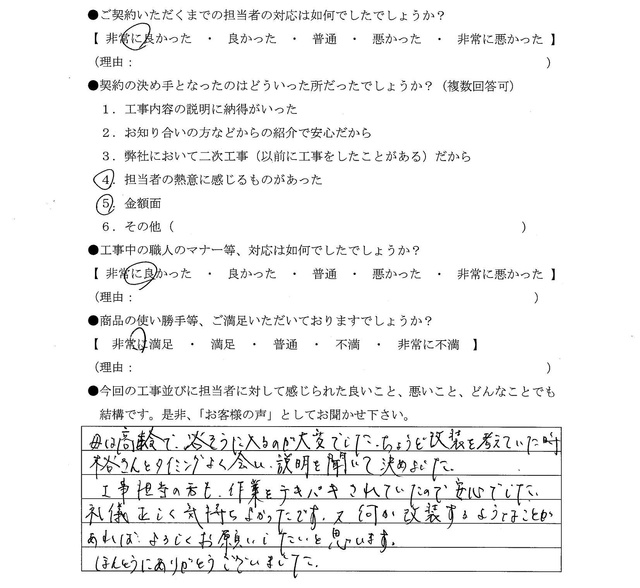 ●ご契約いただくまでの担当者の対応は如何でしたでしょうか？
【 非常に良かった ・ 良かった ・ 普通 ・ 悪かった ・ 非常に悪かった 】
（理由： ）
●契約の決め手となったのはどういった所だったでしょうか？（複数回答可）
１．工事内容の説明に納得がいった
２．お知り合いの方などからの紹介で安心だから
３．弊社において二次工事（以前に工事をしたことがある）だから
４．担当者の熱意に感じるものがあった
５．金額面
６．その他（ ）
●工事中の職人のマナー等、対応は如何でしたでしょうか？
【 非常に良かった ・ 良かった ・ 普通 ・ 悪かった ・ 非常に悪かった 】
（理由： ）
●商品の使い勝手等、ご満足いただいておりますでしょうか？
【 非常に満足 ・ 満足 ・ 普通 ・ 不満 ・ 非常に不満 】
（理由： ）
●今回の工事並びに担当者に対して感じられた良いこと、悪いこと、どんなことでも
結構です。是非、「お客様の声」としてお聞かせ下さい。
母は高齢で、浴そうに入るのが大変でした。ちょうど改装を考えていた時
さんとタイミングよく会い、説明を聞いて決めました。
工事担当の方も、作業をテキパキされていたので安心でした。
礼儀正しく気持ちよかったです。又何か改装するようなことが
あれば、よろしくお願いしたいと思います。
ほんとうにありがとうございました。